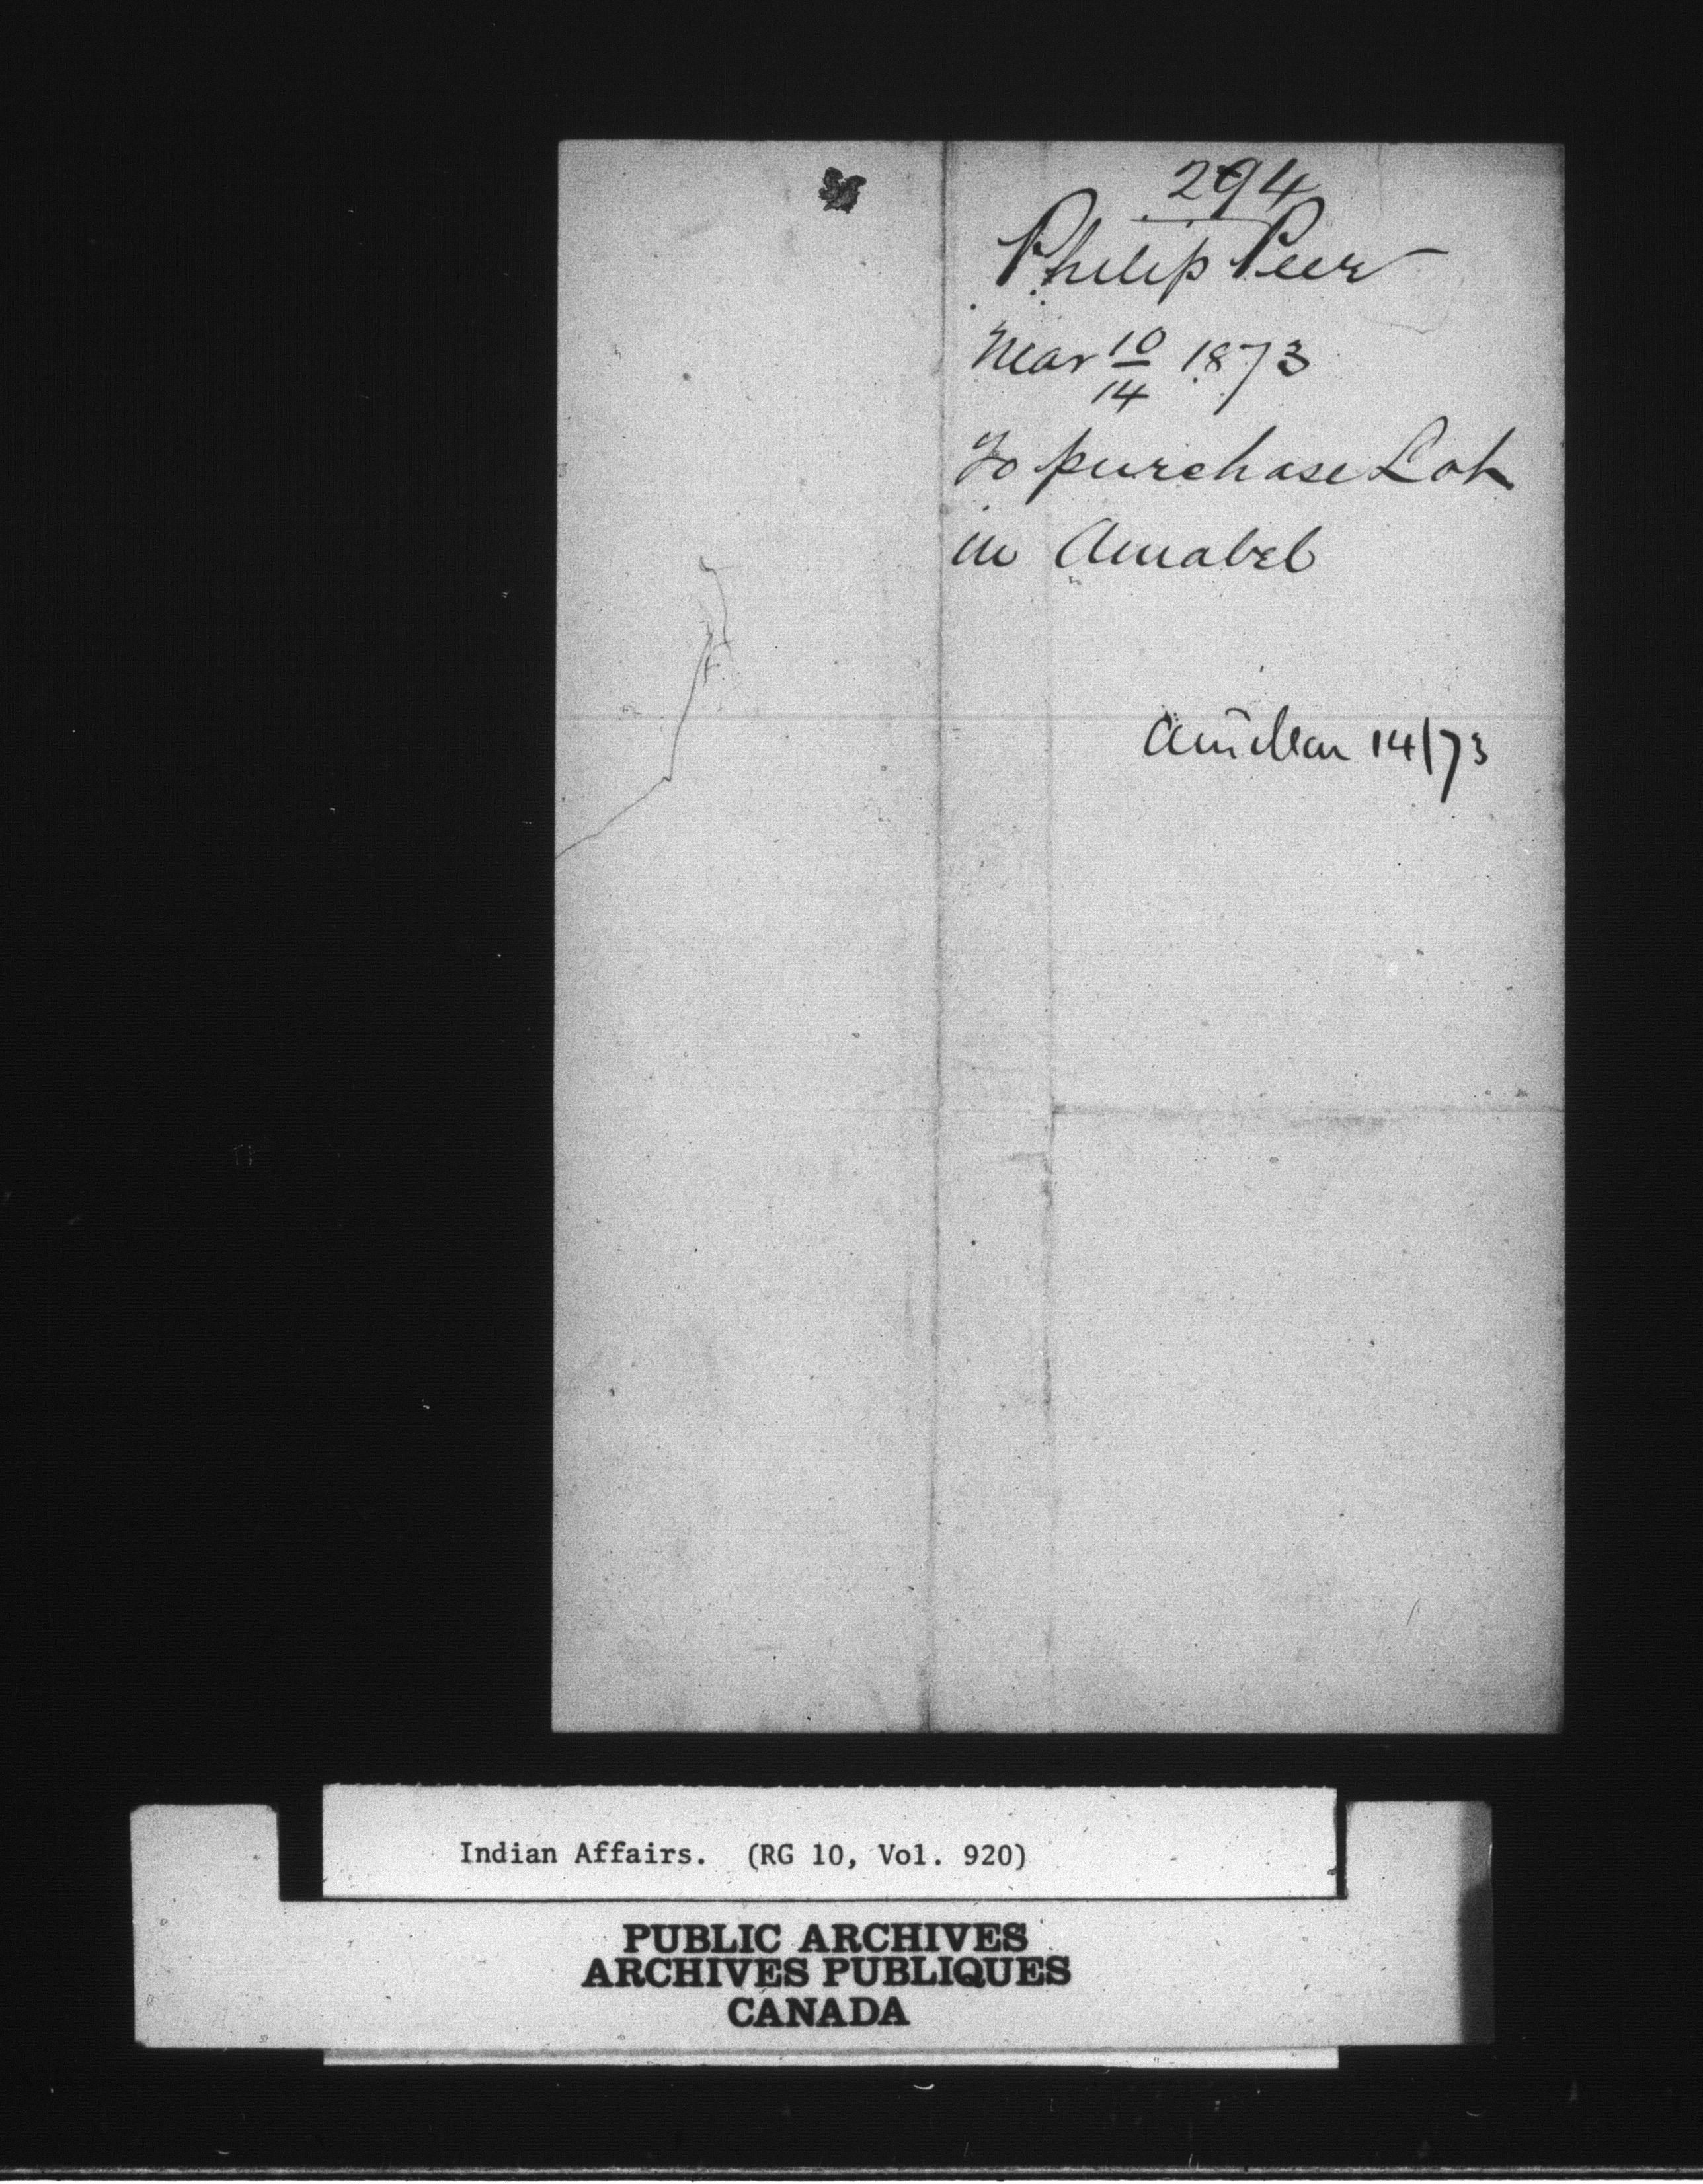 294
Philip Peer
Mar 10/14 1873
To purchase Lot
in Amabel
Mar 14/73
Indian Affairs. (RG 10, Vol. 920)
PUBLIC ARCHIVES
ARCHIVES PUBLIQUES
CANADA